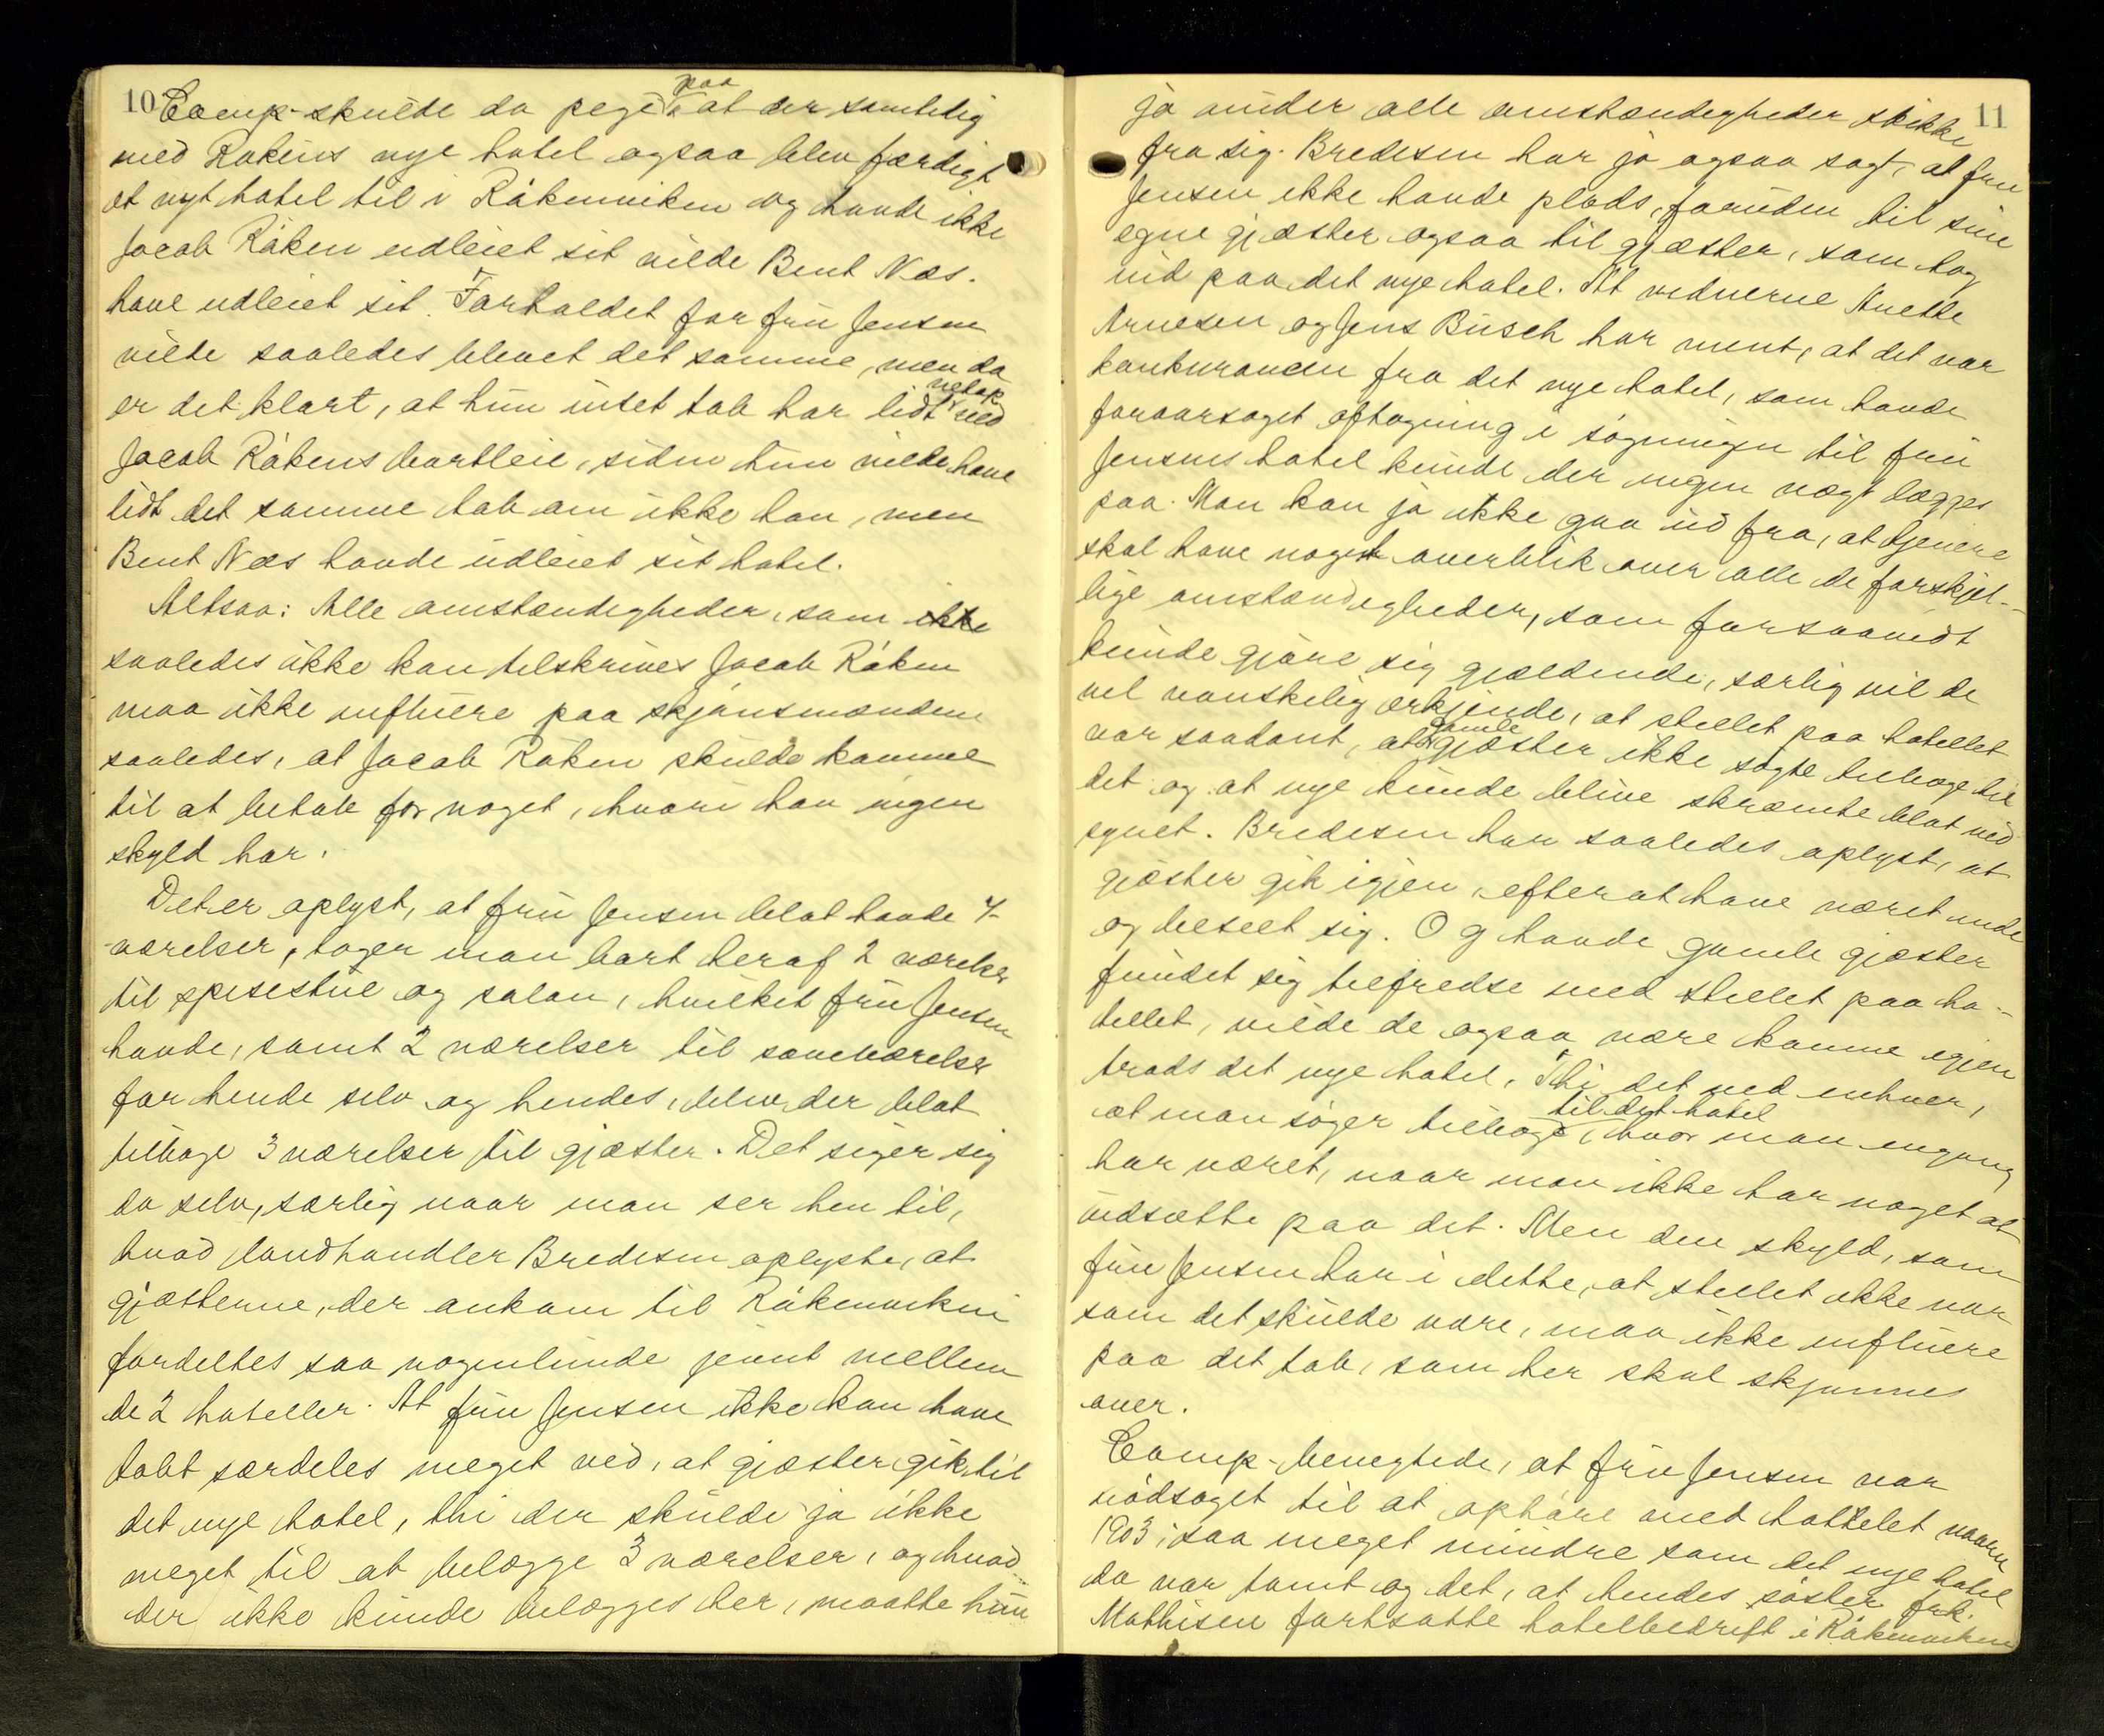 10
Comp. skulde da pege paa at der samtidig
med Rakens nye hotel ogsaa blev færdigt
et nyt hotel til i Råkenviken og havde ikke
Jacob Råken udleiet sit vilde Bent Næs.
have udleiet sit. Forholdet for fru Jensen
vilde saaledes blevet det samme, men da
er det klart, at hun intet tab har lidt netop ved
Jacob Råkens bortleie, siden hun vilde have
lidt det samme tab om ikke han, men
Bent Næs havde udleiet sit hotel.
Altsaa: Alle omstændigheder, som ikke
saaledes ikke kan tilskrives Jacob Råken
maa ikke influere paa skjønsmændene
saaledes, at Jacob Råken skulde komme
til at betale for noget, hvori han ingen
skyld har.
Det er oplyst, at fru Jensen blot havde 7
værelser, tager man bort deraf 2 værelser
til spisestue og salon, hvilket fru Jensen
havde, samt 2 værelser til soveværelser
for hende selv og hendes, blev der blot
tilbage 3 værelser til gjæster. Det siger sig
da selv, særlig naar man ser hen til,
hvad landhandler Bredesen oplyste, at
gjæsterne, der ankom til Råkenviken
fordeltes saa nogenlunde jevnt mellem
de 2 hoteller. At fru Jensen ikke kan have
tabt særdeles meget ved, at gjæster gik til
det nye hotel, thi der skulde ja ikke
meget til at belægge 3 værelser, og hvad
der ikke kunde belægges her, maatte hun
11
jo under alle omstændigheder skikke
fra sig. Bredesen har jo ogsaa sagt, at fru
Jensen ikke havde plads, foruden til sine
egne gjæster ogsaa til gjæster, som tog
ind paa det nye hotel. At vidnerne Anette
Arnesen og Jens Busch har ment, at det var
konkurancen fra det nye hotel, som havde
foraarsaget aftagning i søgningen til fru
Jensens hotel kunde der ingen vægt lægges
paa. Man kan jo ikke gaa ud fra, at tjenere
skal have noget overblik over alle de forskjel-
lige omstændigheder, som forsaavidt
kunde gjøre sig gjældende, særlig vil de
vel vanskelig erkjende, at stellet paa hotellet
var saadant, at gamle gjæster ikke søgte tilbage til
det og at nye kunde blive skræmte blot ved
synet. Bredesen har saaledes oplyst, at
gjæster gik igjen, efter at have været inde
og beseet sig. Og havde gamle gjæster
fundet sig tilfredse med stellet paa ho-
tellet, vilde de ogsaa være komne igjen
trods det nye hotel, Thi det ved enhver,
at man søger tilbage til det hotel, hvor man engang
har været, naar man ikke har noget at
udsætte paa det. Men den skyld, som
fru Jensen har i dette, at stellet ikke var
som det skulde være, maa ikke influere
paa det tab, som her skal skjønnes
over.
Comp. benegtede, at fru Jensen var
nødsaget til at ophøre med hottelet vaaren
1903, saa meget mindre som det nye hotel
da var tomt og det, at hendes søster frk.
Mathisen fortsatte hotelbedrift i Råkenviken